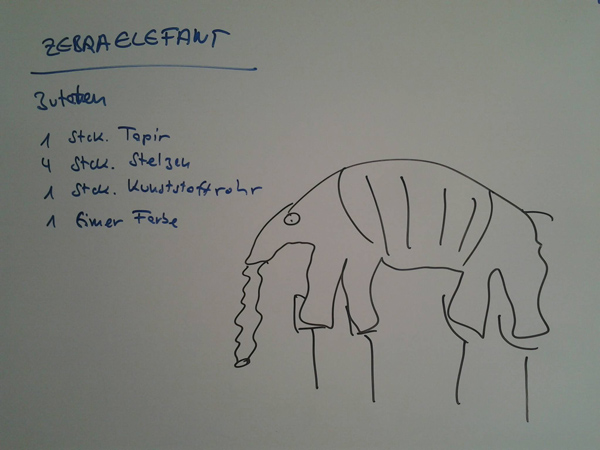 ZEBRAELEFANT
Zutaten
1 Stck. Tapir
4 Stck. Stelzen
1 Stck. Kunststoffrohr
1 Eimer Farbe